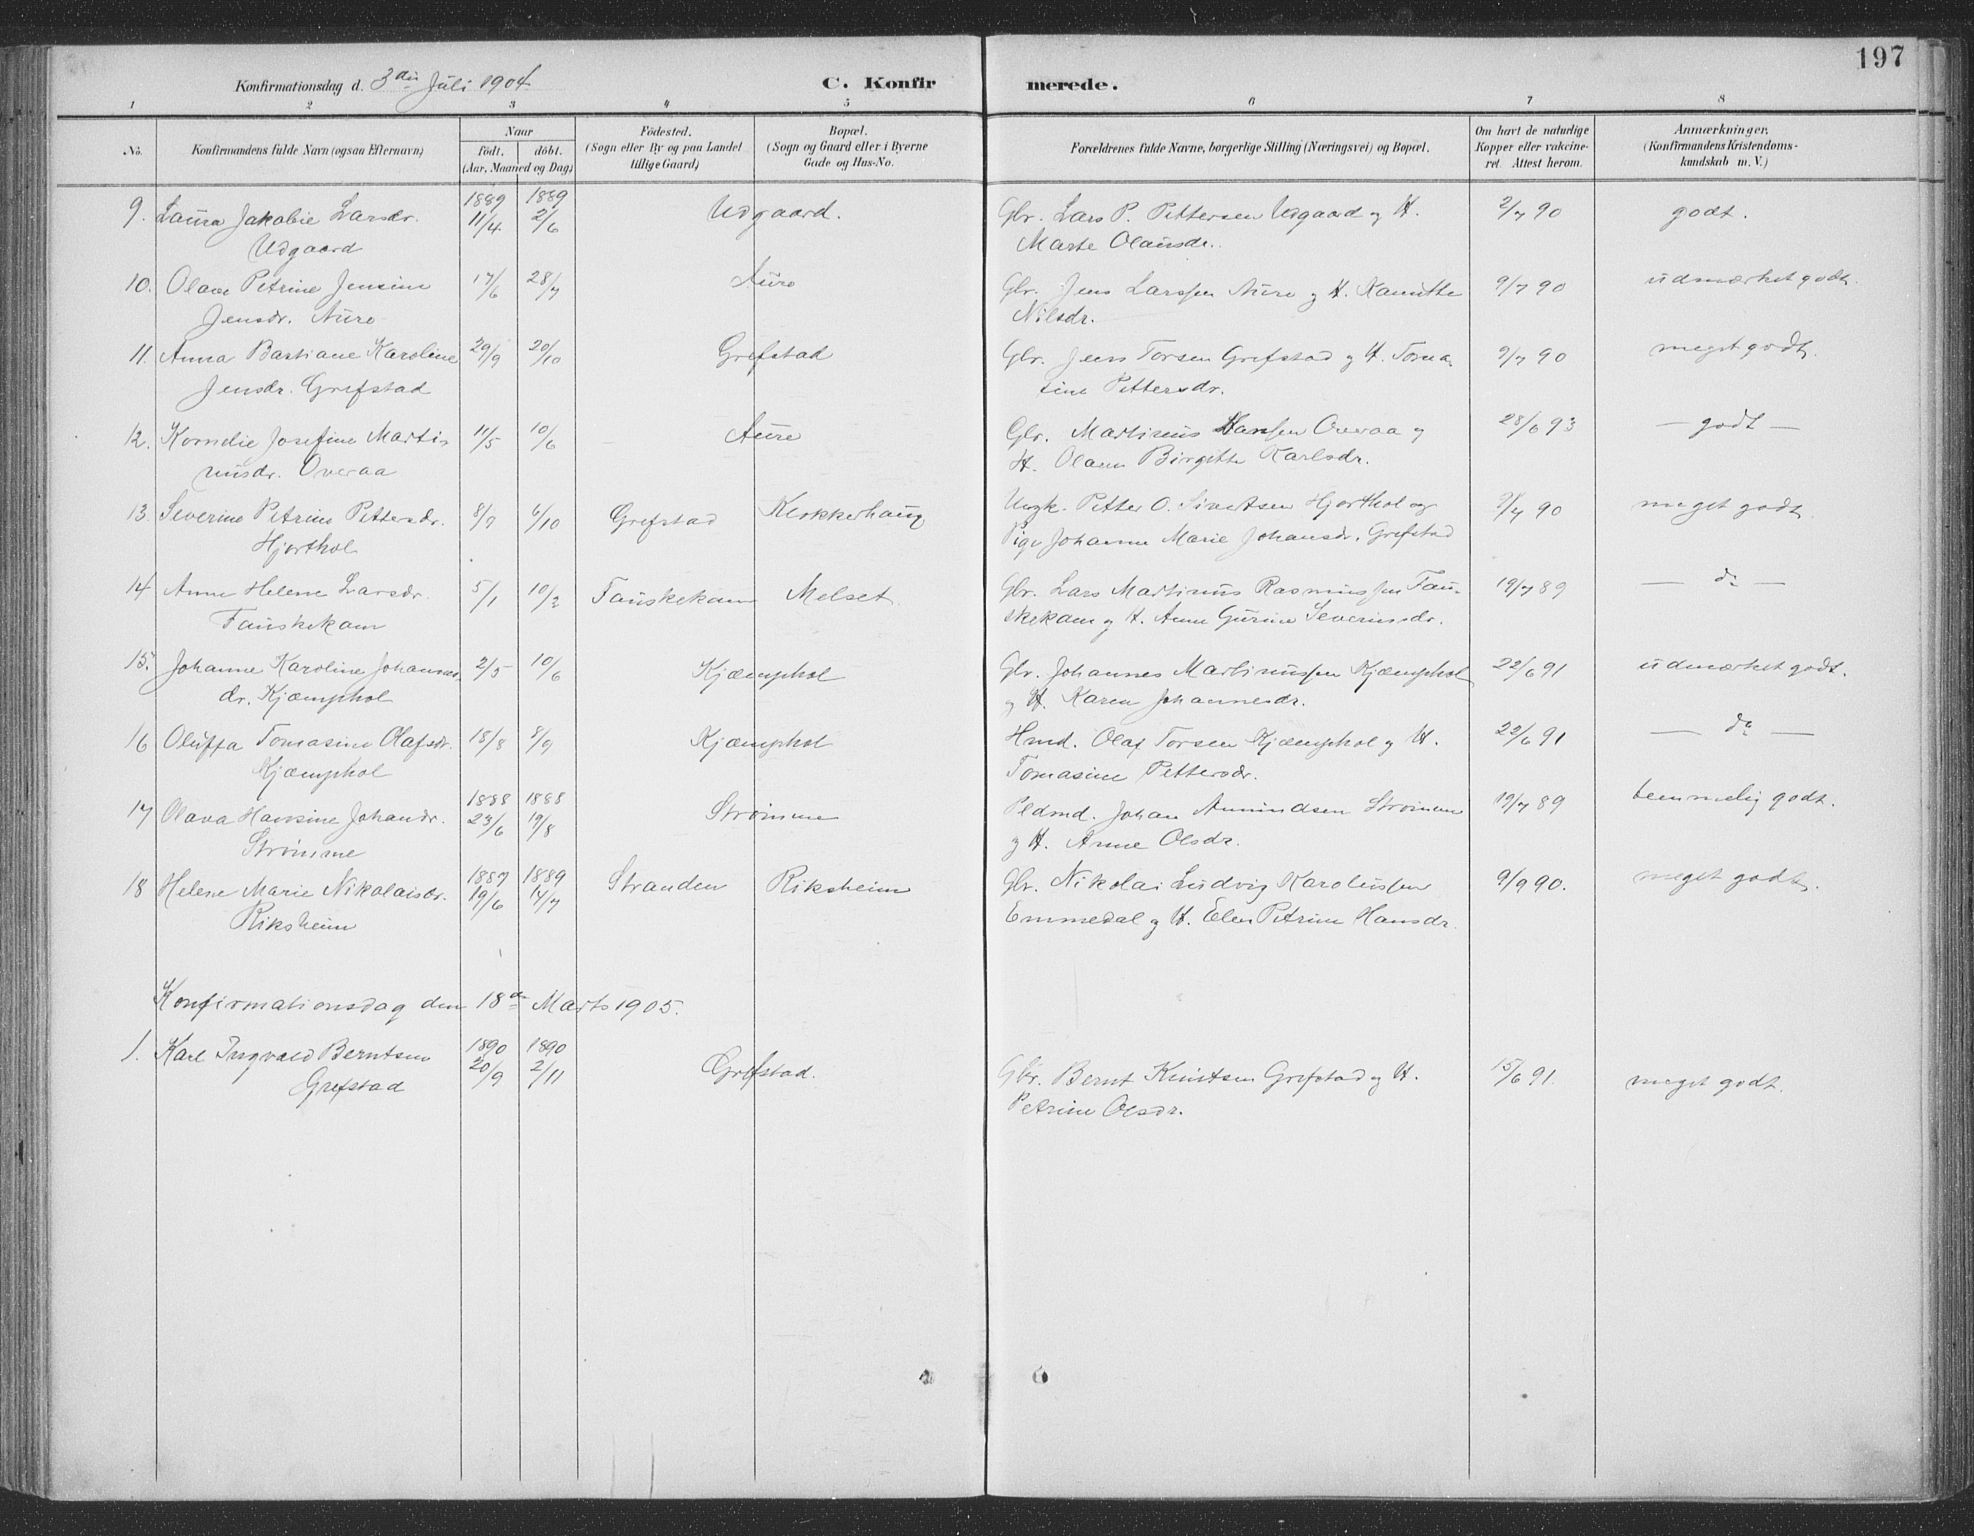 197
Konfirmationsdag d. 3die Juli 1904.
C. Konfirmerede.
1 2 3 4 5 6 7 8
No.
Konfirmandens fulde Navn (ogsaa Efternavn)
Naar
födt. döbt.
(Aar, Maaned og Dag)
Födested.
(Sogn eller By og paa Landet
tillige Gaard)
Bopæl.
(Sogn og Gaard eller i Byerne
Gade og Hus-No.
Forældrenes fulde Navne, borgerlige Stilling (Næringsvei) og Bopæl.
Om havt de naturlige
Kopper eller vakcine-
ret. Attest herom.
Anmærkninger.
(Konfirmandens Kristendoms-
kundskab m. V.)
1889 1889
9. Laura Jakobie Larsdr. 11/4 2/6 Udgaard. Gbr. Lars P. Pettersen Udgaard og H. 2/7 90 godt.
Udgaard Marte Olausdr.
10. Olave Petrine Jensine 17/6 28/7 Aure Gbr. Jens Larssen Aure og H. Kanutte 9/7 90 udmærket godt.
Jensdr. Aure Nilsdr.
11. Anna Bastiane Karoline 29/9 20/10 Grefstad Gbr. Jens Torsen Grefstad og H. Toma- 9/7 90 meget godt.
Jensdr. Grefstad sine Pettersdr.
12. Kornelie Josefine Marti- 11/5 10/6 Aure Gbr. Martinus Hansen Overaa og 28/6 93 — godt —
nusdr. Overaa H. Olava Birgitte Karlsdr.
13. Severine Petrine Pettersdr. 8/7 6/10 Grefstad Klokkerhaug Ungk. Petter O. Sivertsen Hjorthol og 90 meget godt.
Hjorthol Pige Johanne Marie Johansdr. Grefstad
14 Anne Helene Larsdr. 5/1 10/2 Fauskekam Melset. Gbr. Lars Martinus Rasmussen Fau- 19/7 89 — do —
Fauskekam skekam og H. Anne Gurine Severinsdr.
15. Johanne Karoline Johannes- 2/5 10/6 Kjæmphol Gbr. Johannes Martinussen Kjæmphol 22/6 91 udmærket godt.
dr. Kjæmphol og H. Karen Johannesdr.
16 Oluffa Tomasine Olafsdr. 18/8 8/9 Kjæmphol Hmd. Olaf Torsen Kjæmphol og H. 22/6 91 — do —
Kjæmphol Tomasine Pettersdr.
1888 1888
17 Olava Hansine Johandr. 23/6 19/8 Strømme Pldmd. Johan Amundsen Strømme 19/7 89 temmelig godt.
Strømme og H. Anne Olsdr.
1887 1889
18 Helene Marie Nikolaisdr. 19/6 14/7 Stranden Riksheim Gbr. Nikolai Ludvig Karolussen 9/9 90. meget godt.
Riksheim Emmedal og H. Elen Petrine Hansdr.
Konfirmationsdag den 18de Marts 1905.
1890 1890
1. Karl Ingvald Berntsen 20/9 2/11 Grefstad. Gbr. Bernt Knutsen Grefstad og H. 15/6 91. meget godt.
Grefstad Petrine Olsdr.